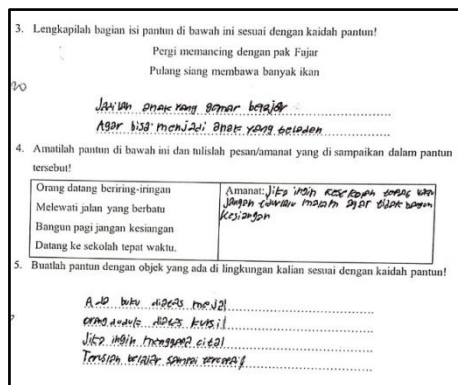 3. Lengkapilah bagian isi pantun di bawah ini sesuai dengan kaidah pantun!
Pergi memancing dengan pak Fajar
Pulang siang membawa banyak ikan
20
Jadilah anak yang gemar belajar
Agar bisa menjadi anak yang teladan
4. Amatilah pantun di bawah ini dan tulislah pesan/amanat yang di sampaikan dalam pantun
tersebut!
Orang datang beriring-iringan
Melewati jalan yang berbatu
Bangun pagi jangan kesiangan
Datang ke sekolah tepat waktu.
Amanat: Jika ingin kesekolah tepat waktu
jangan malam agar tidak bangun
kesiangan
5. Buatlah pantun dengan objek yang ada di lingkungan kalian sesuai dengan kaidah pantun!
Ada buku diatas meja
orang duduk diatas kursi
Jika ingin cita
belajar sampai